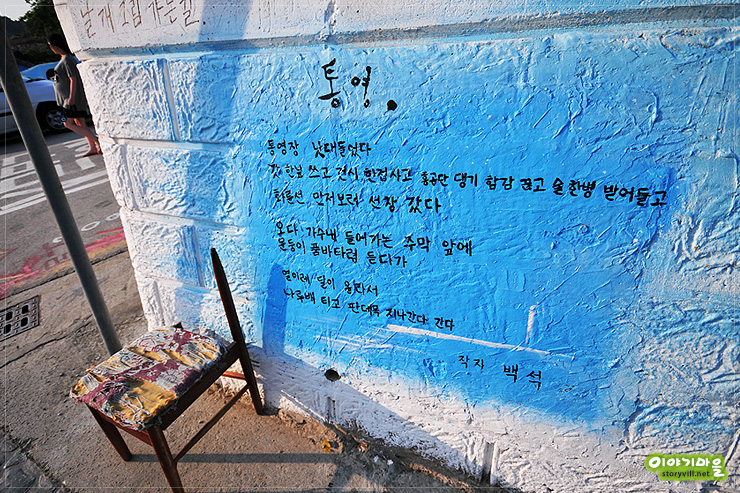 날개 그림 가는 길.
통영.
통영장 낫대들었다
갓 한닢 쓰고 건시 한접 사고 홍공단 댕기 한감 끊고 술 한병 받어들고
화륜선 만저보려 선창 갔다
오다 가수내 들어가는 주막 앞에
문둥이 품바타령 듣다가
열이레 달이 올라서
나룻배 타고 판데목 지나간다 간다
작자 백석
이야기마을
storyvill.net